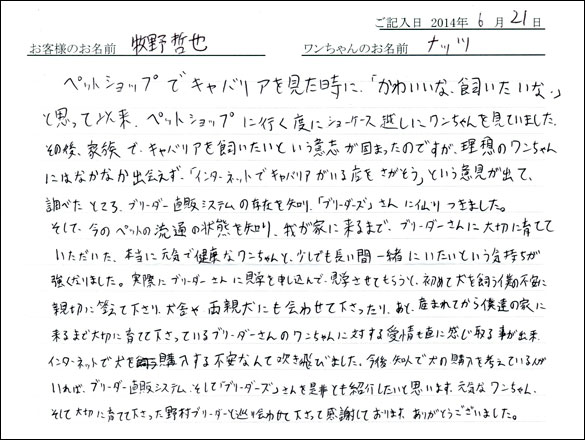 ご記入日 2014年 6月 21日
お客様のお名前 牧野哲也 ワンちゃんのお名前 ナッツ
ペットショップでキャバリアを見た時に、「かわいいな、飼いたいな。」
と思って以来、ペットショップに行く度にショーケース越しにワンちゃんを見ていました。
その後、家族で、キャバリアを飼いたいという意志が固まったのですが、理想のワンちゃん
にはなかなか出会えず、「インターネットでキャバリアがいる店をさがそう」という意見が出て、
調べたところ、ブリーダー直販システムの存在を知り、「ブリーダーズ」さんに辿りつきました。
そして、今のペットの流通の状態を知り、我が家に来るまで、ブリーダーさんに大切に育てて
いただいた、本当に元気で健康なワンちゃんと、少しでも長い間一緒にいたいという気持ちが
強くなりました。実際にブリーダーさんに見学を申し込んで、見学させてもらうと、初めて犬を飼う僕の不安に
親切に答えて下さり、犬舎や両親犬にも会わせて下さったり、あと、産まれてから僕達の家に
来るまで大切に育てて下さっているブリーダーさんのワンちゃんに対する愛情も直に感じ取る事が出来、
インターネットで犬を購入する不安なんて吹き飛びました。今後、知人で犬の購入を考えている人が
いれば、ブリーダー直販システム、そして「ブリーダーズ」さんを是非とも紹介したいと思います。元気なワンちゃん、
そして大切に育てて下さった野村ブリーダーと巡り会わせて下さって感謝しております。ありがとうございました。